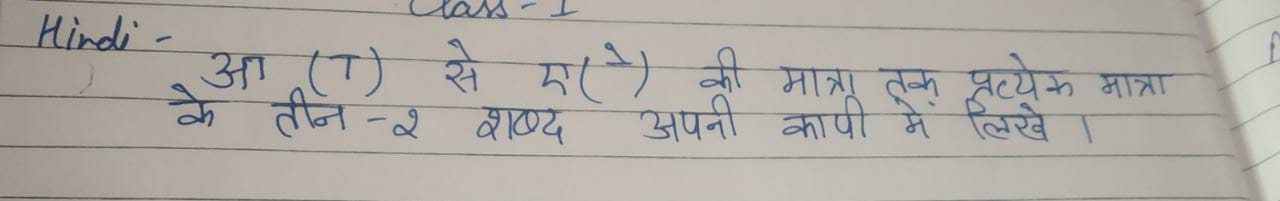 Class - I
Hindi -
आ (ा) से ए(े) की मात्रा तक प्रत्येक मात्रा
के तीन -२ शब्द अपनी कापी में लिखे ।